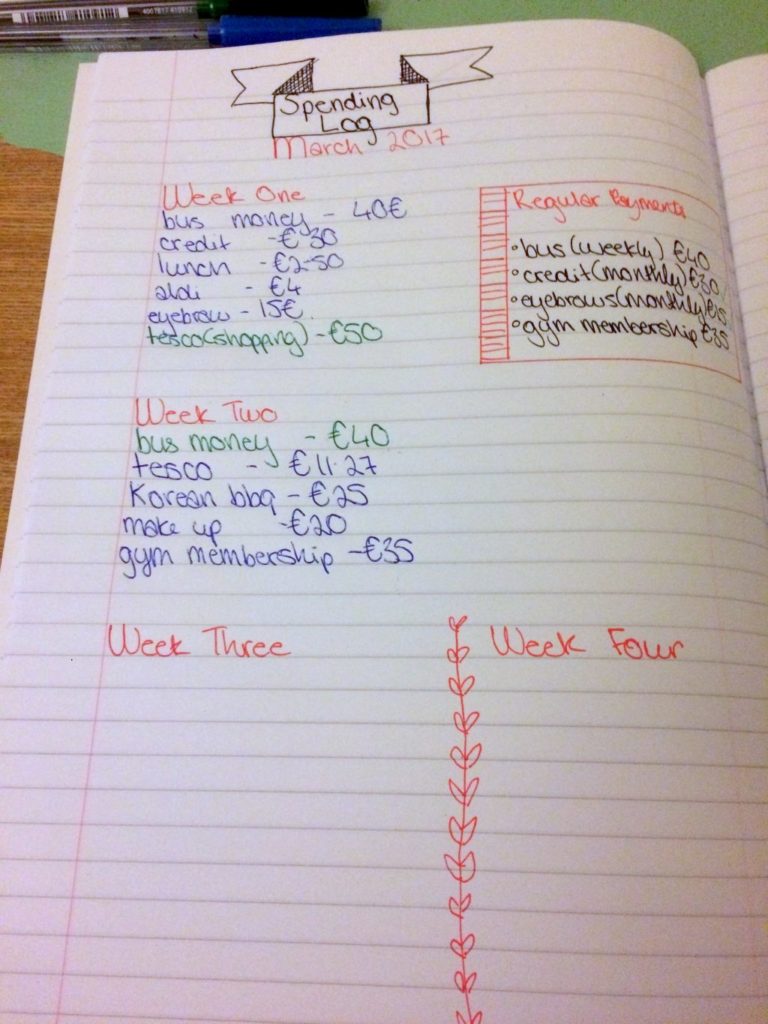 Spending
Log
March 2017
Week One
bus money - 40€
credit - €30
lunch - €2-50
aldi - €4
eyebrow - 15€.
tesco(shopping) - €50
Regular Payments
• bus (weekly) €40
• credit (monthly) €30
• eyebrows (monthly) €15
• gym membership €35
Week Two
bus money - €40
tesco - €11.27
Korean bbq - €25
make up - €20
gym membership - €35
Week Three
Week Four